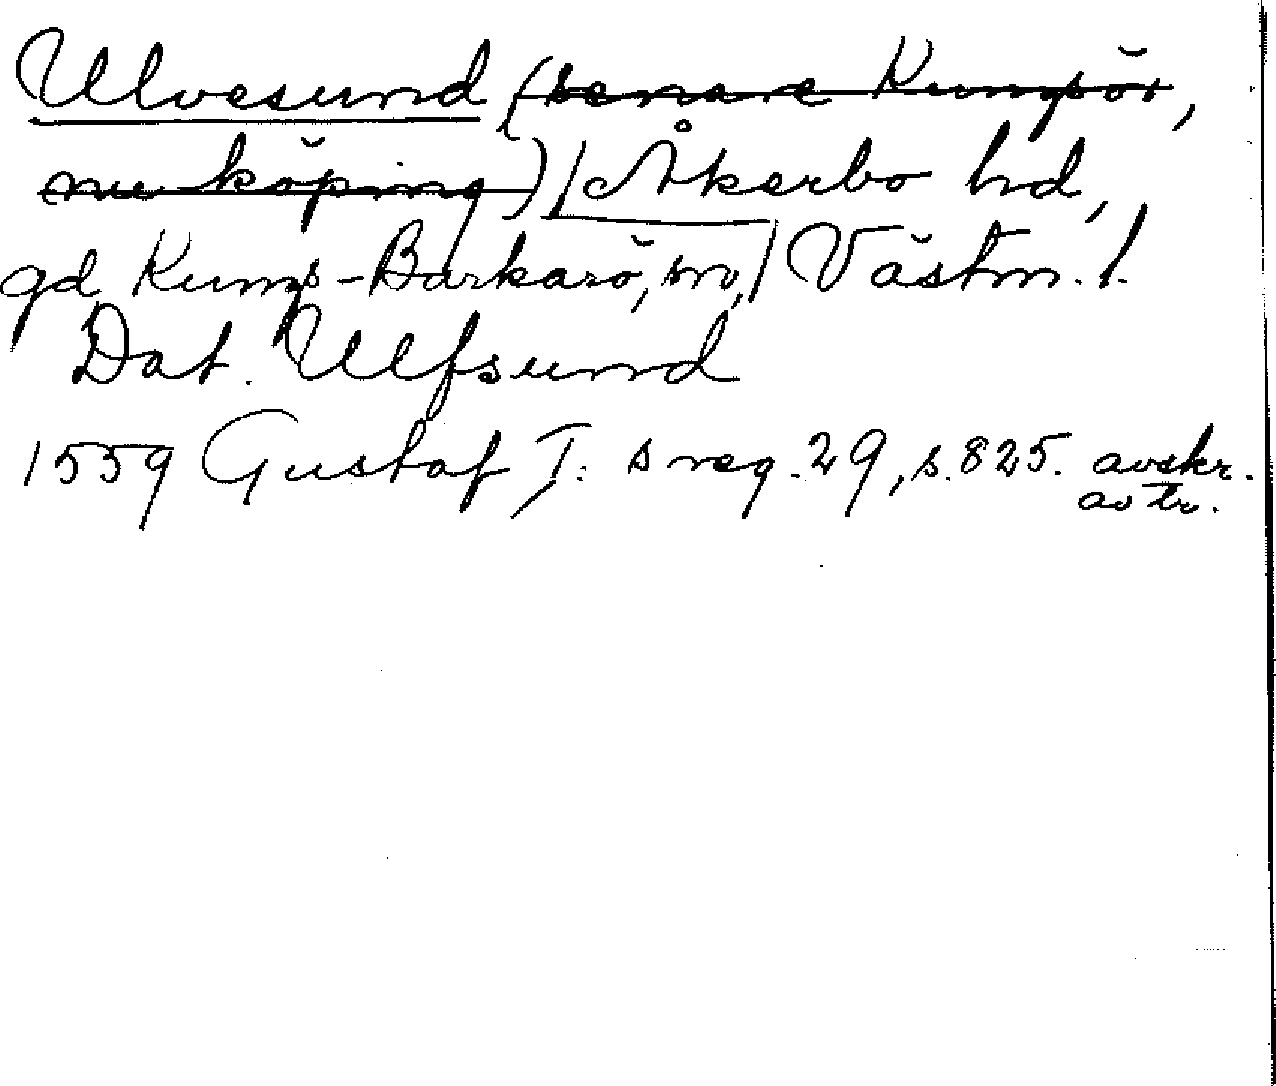 Ulvesund (senare Kungsör,
nu köping) Åkerbo hd,
gd, Kungs-Barkarö, sn, Västm. l.
Dat. Ulfsund
1559 Gustaf I:s reg. 29, s. 825. avskr.
av tr.